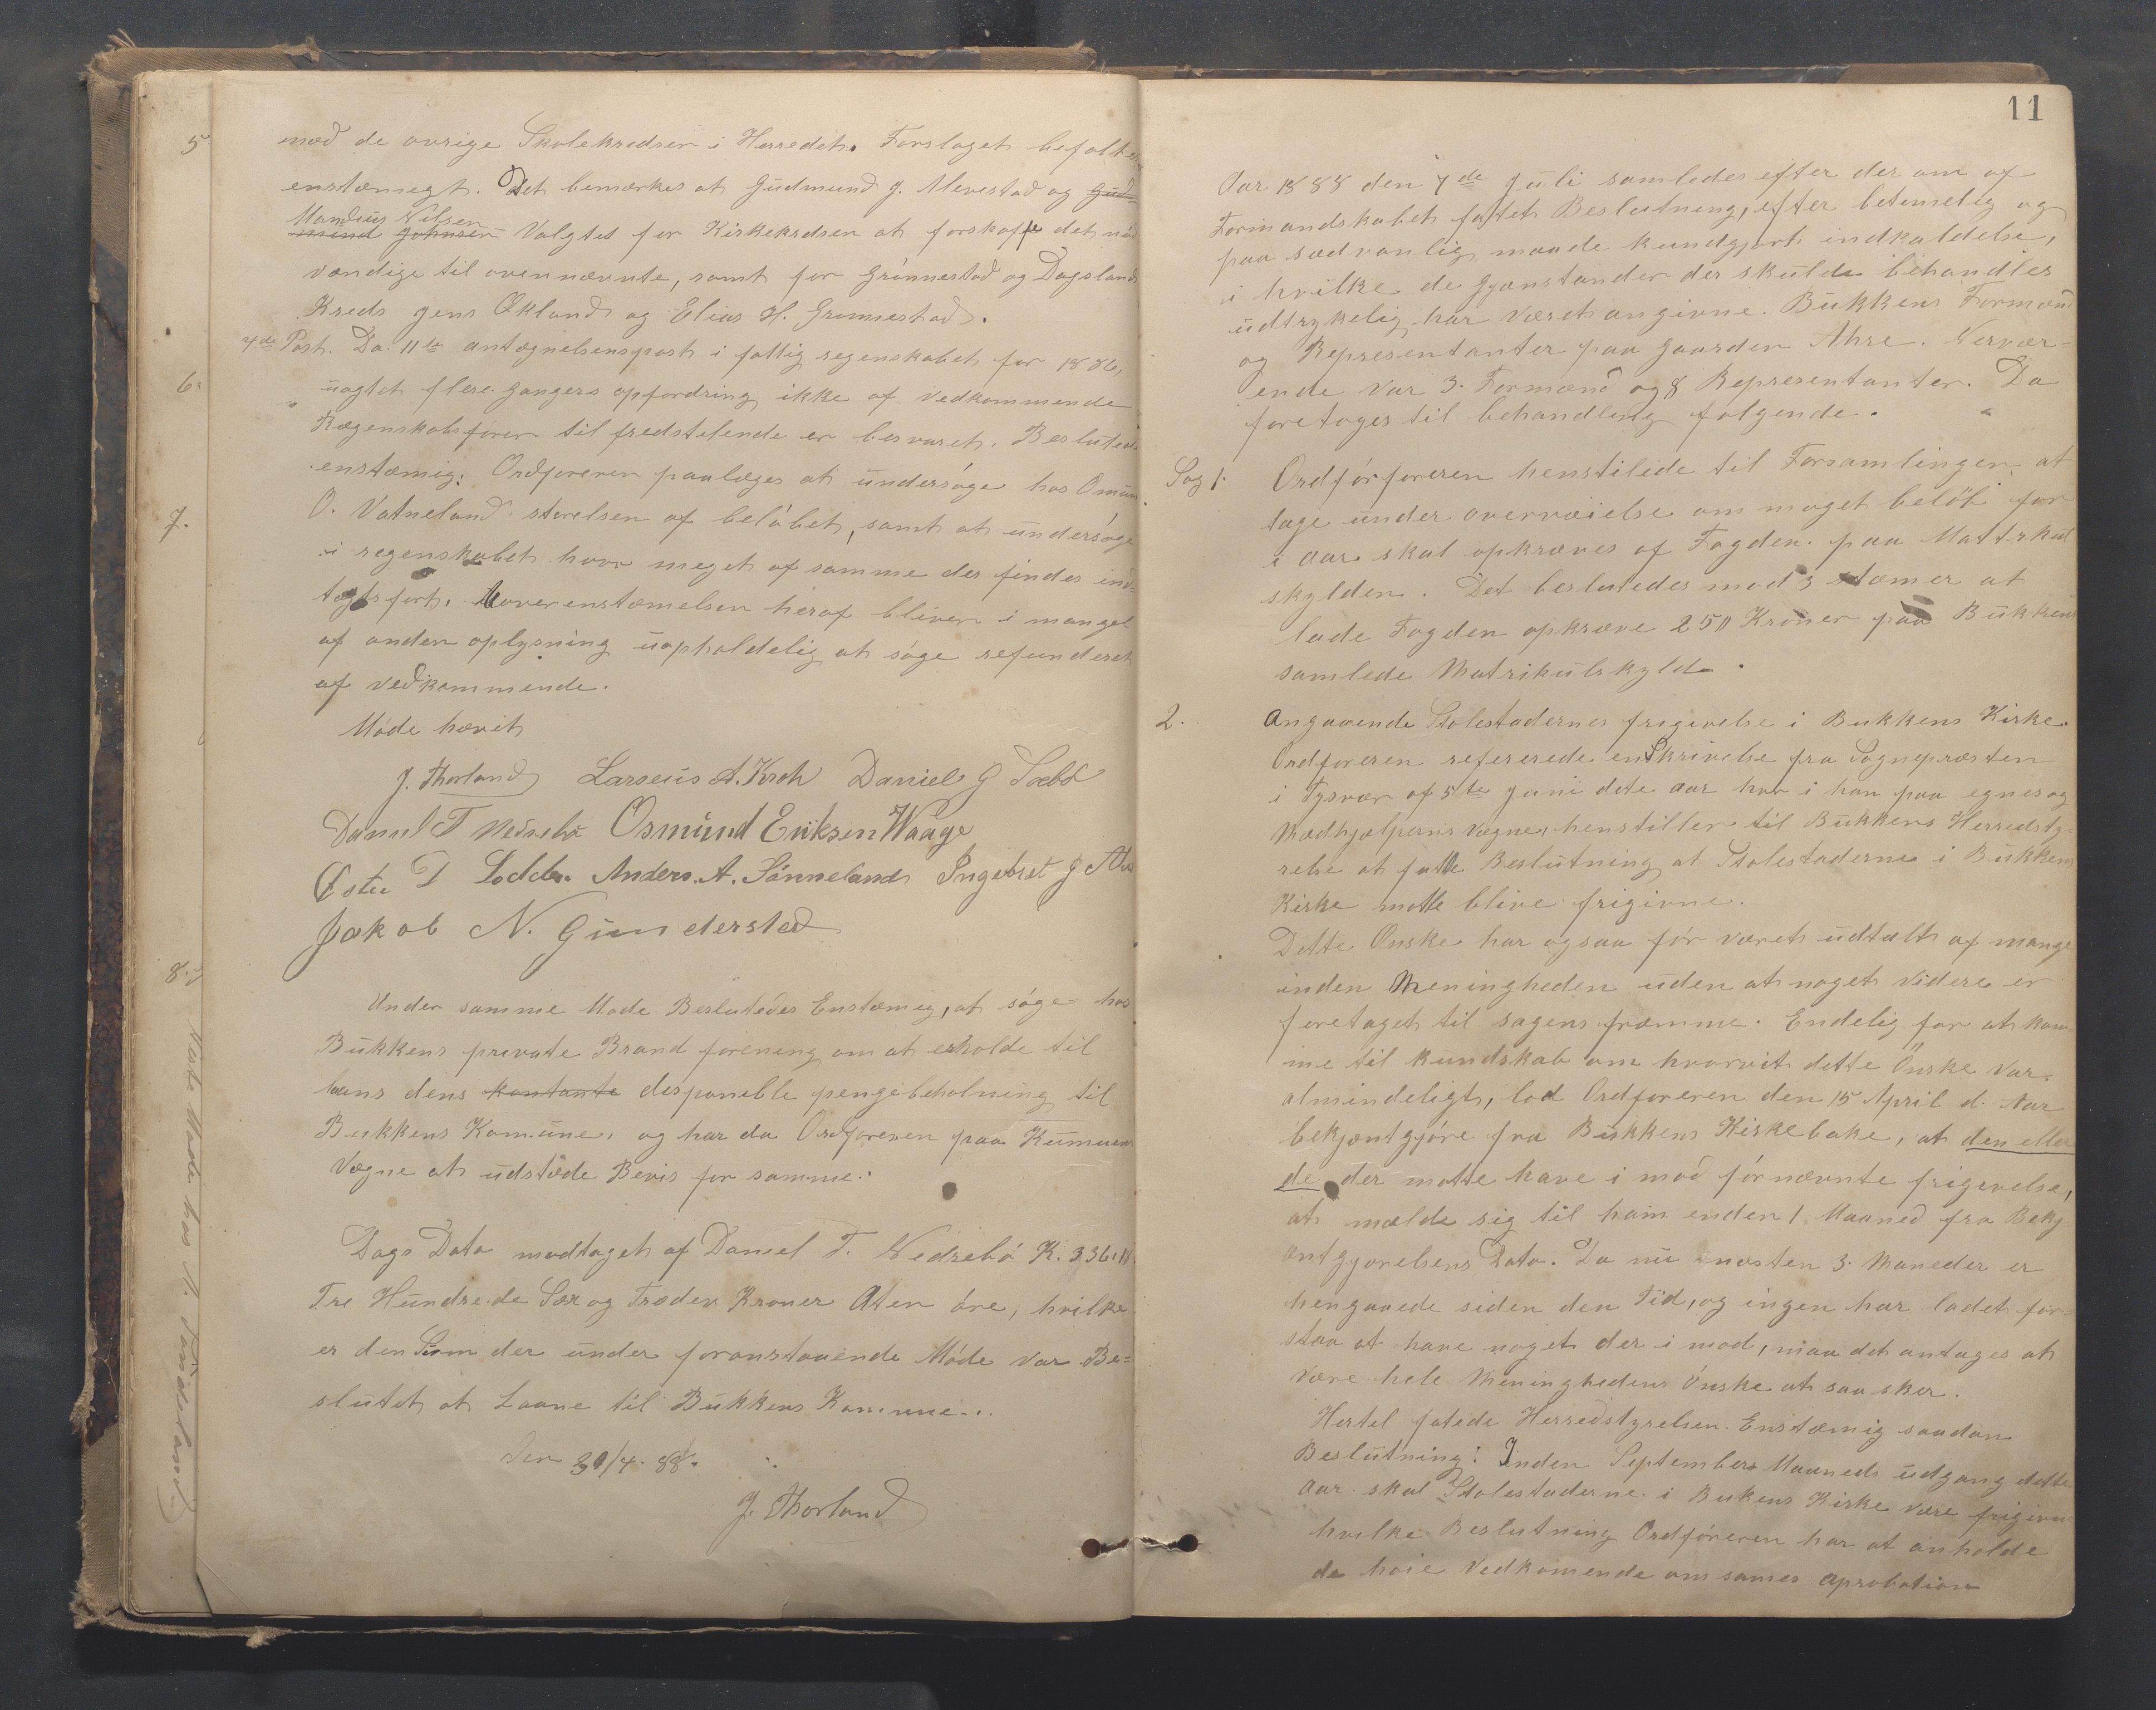 5
med de øvrige Skolekredser i Herredet. Forslaget befaltes
enstæmegt. Det bemærkes at Gudmund J. Alvestad og Gud
Mandius Nilsen
mund Johnsen Valgtes for Kirkekredsen at forskaffe det nød
vændige til ovennævnte, samt for Grönnestad og Dagsland
Kreds Jens Økland og Elias H. Grønnestad.
4de Post. Da 11te antægnelsespost i fattig regenskabet for 1886,
6.
uagtet flere gangers opfordring ikke af Vedkommende
Rægenskabsfører til fredstelende er besvaret. Besluttedes
enstæmig: Ordføreren paalæges at undersöge hos Omund
7.
O. Vatneland störelsen af belöbet, samt at undersöge
i regenskabet hvor meget af samme der findes ind-
tægtsført. Uoverenstæmelsen heraf bliver i mangel
af anden oplysning uopholdelig at söge refunderet
af vedkommende.
Möde hævet
J. Thorland Larseus A. Kroh Daniel G Sæbö
Daniel T Nedrebö Osmund Eriksen Waage
Østen D Lodden Anders. A. Sönneland Ingebret J
Jakob N. Gunderstad
8.
Under samme Möde Besluttedes Enstæmig, at söge hos
Bukkens private Brand forening om at erholde til
laans dens kontante desponible pengebeholning til
Bukkens Komune, og har da Ordføreren paa Kumunens
Vægne at udstæde Bevis for samme.
Dags Dato modtaget af Daniel T. Nedrebö K. 336.18
Tre Hundrede Sex og Træden Kroner Aten öre, hvilke
er den Sum der under foranstaaende Möde var Be=
slutet at Laane til Bukkens Komune..
den 30/4. 88.
J. Thorland
Næste Möde hos
11
Aar 1888 den 7de Juli samledes efter der om af
Formandskabet fattet Beslutning, efter betimelig og
paa sædvanlig maade kundgjort indkaldelse,
i hvilke de Gjænstander der skulde behandles
udtrykelig har været angivne. Bukkens Formænd
og Representanter paa Gaarden Ahre. Nervær-
ende var 3. Formænd og 8 Representanter. Da
foretoges til behandling følgende.
Sag 1.
Ordförføreren henstillede til Forsamlingen at
tage under overveielse om meget belöb for
i aar skal opkræves af Fogden paa Mattrkul
skylden. Det beslutedes mod 3 stæmer at
lade Fogden opkræve 250 Kroner paa Bukkens
samlede Matrikulskyld.
2.
Angaaende Stolestadernes frigivelse i Bukkens Kirke.
Ordføreren refererede en Skrivelse fra Sognepræsten
i Tysvær af 5te Juni dete aar hvor i han paa egne og
Mædhjælpernes vægne, henstiller til Bukkens Herredsty-
relse at fatte Beslutning at Stolestaderne i Bukkens
Kirke matte blive frigivne.
Dette Önske har ogsaa för været udtalt af mange
inden Meningheden uden at noget videre er
foretaget til sagens fræmme. Endelig for at kom-
me til Kundskab om hvorvit dette Önske var
almindeligt, lod Ordføreren den 15 April d. Aar
bekjæntgjöre fra Bukkens Kirkebake, at den eller
de der matte have i mod förnævnte frigivelse,
at mælde sig til ham enden 1 Maaned fra Bekj-
æntgjørelsens Dato. Da nu næsten 3. Maneder er
hengaaede siden den Tid, og ingen har ladet for-
staa at have noget der i mod, maa det antages at
være hele Meninghedens Önske at saa sker.
Hertel fatede Herredstyrelsen Enstæmig saadan
Beslutning: Inden Septembers Maaneds udgang dette
Aar skal Stolestaderne i Bukens Kirke være frigivne
hvilke Beslutning Ordföreren har at anholde
de höie Vedkomende om sames Aprobation